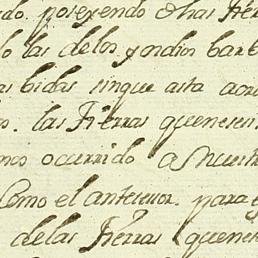 do. poseyendo dhas tier
o las delos yndios bar
as bidas sinque asta aora
s. las tierras quenesesi
mos ocurrido a Nuestr
Como el antecesor. para e
delas tierras quenese